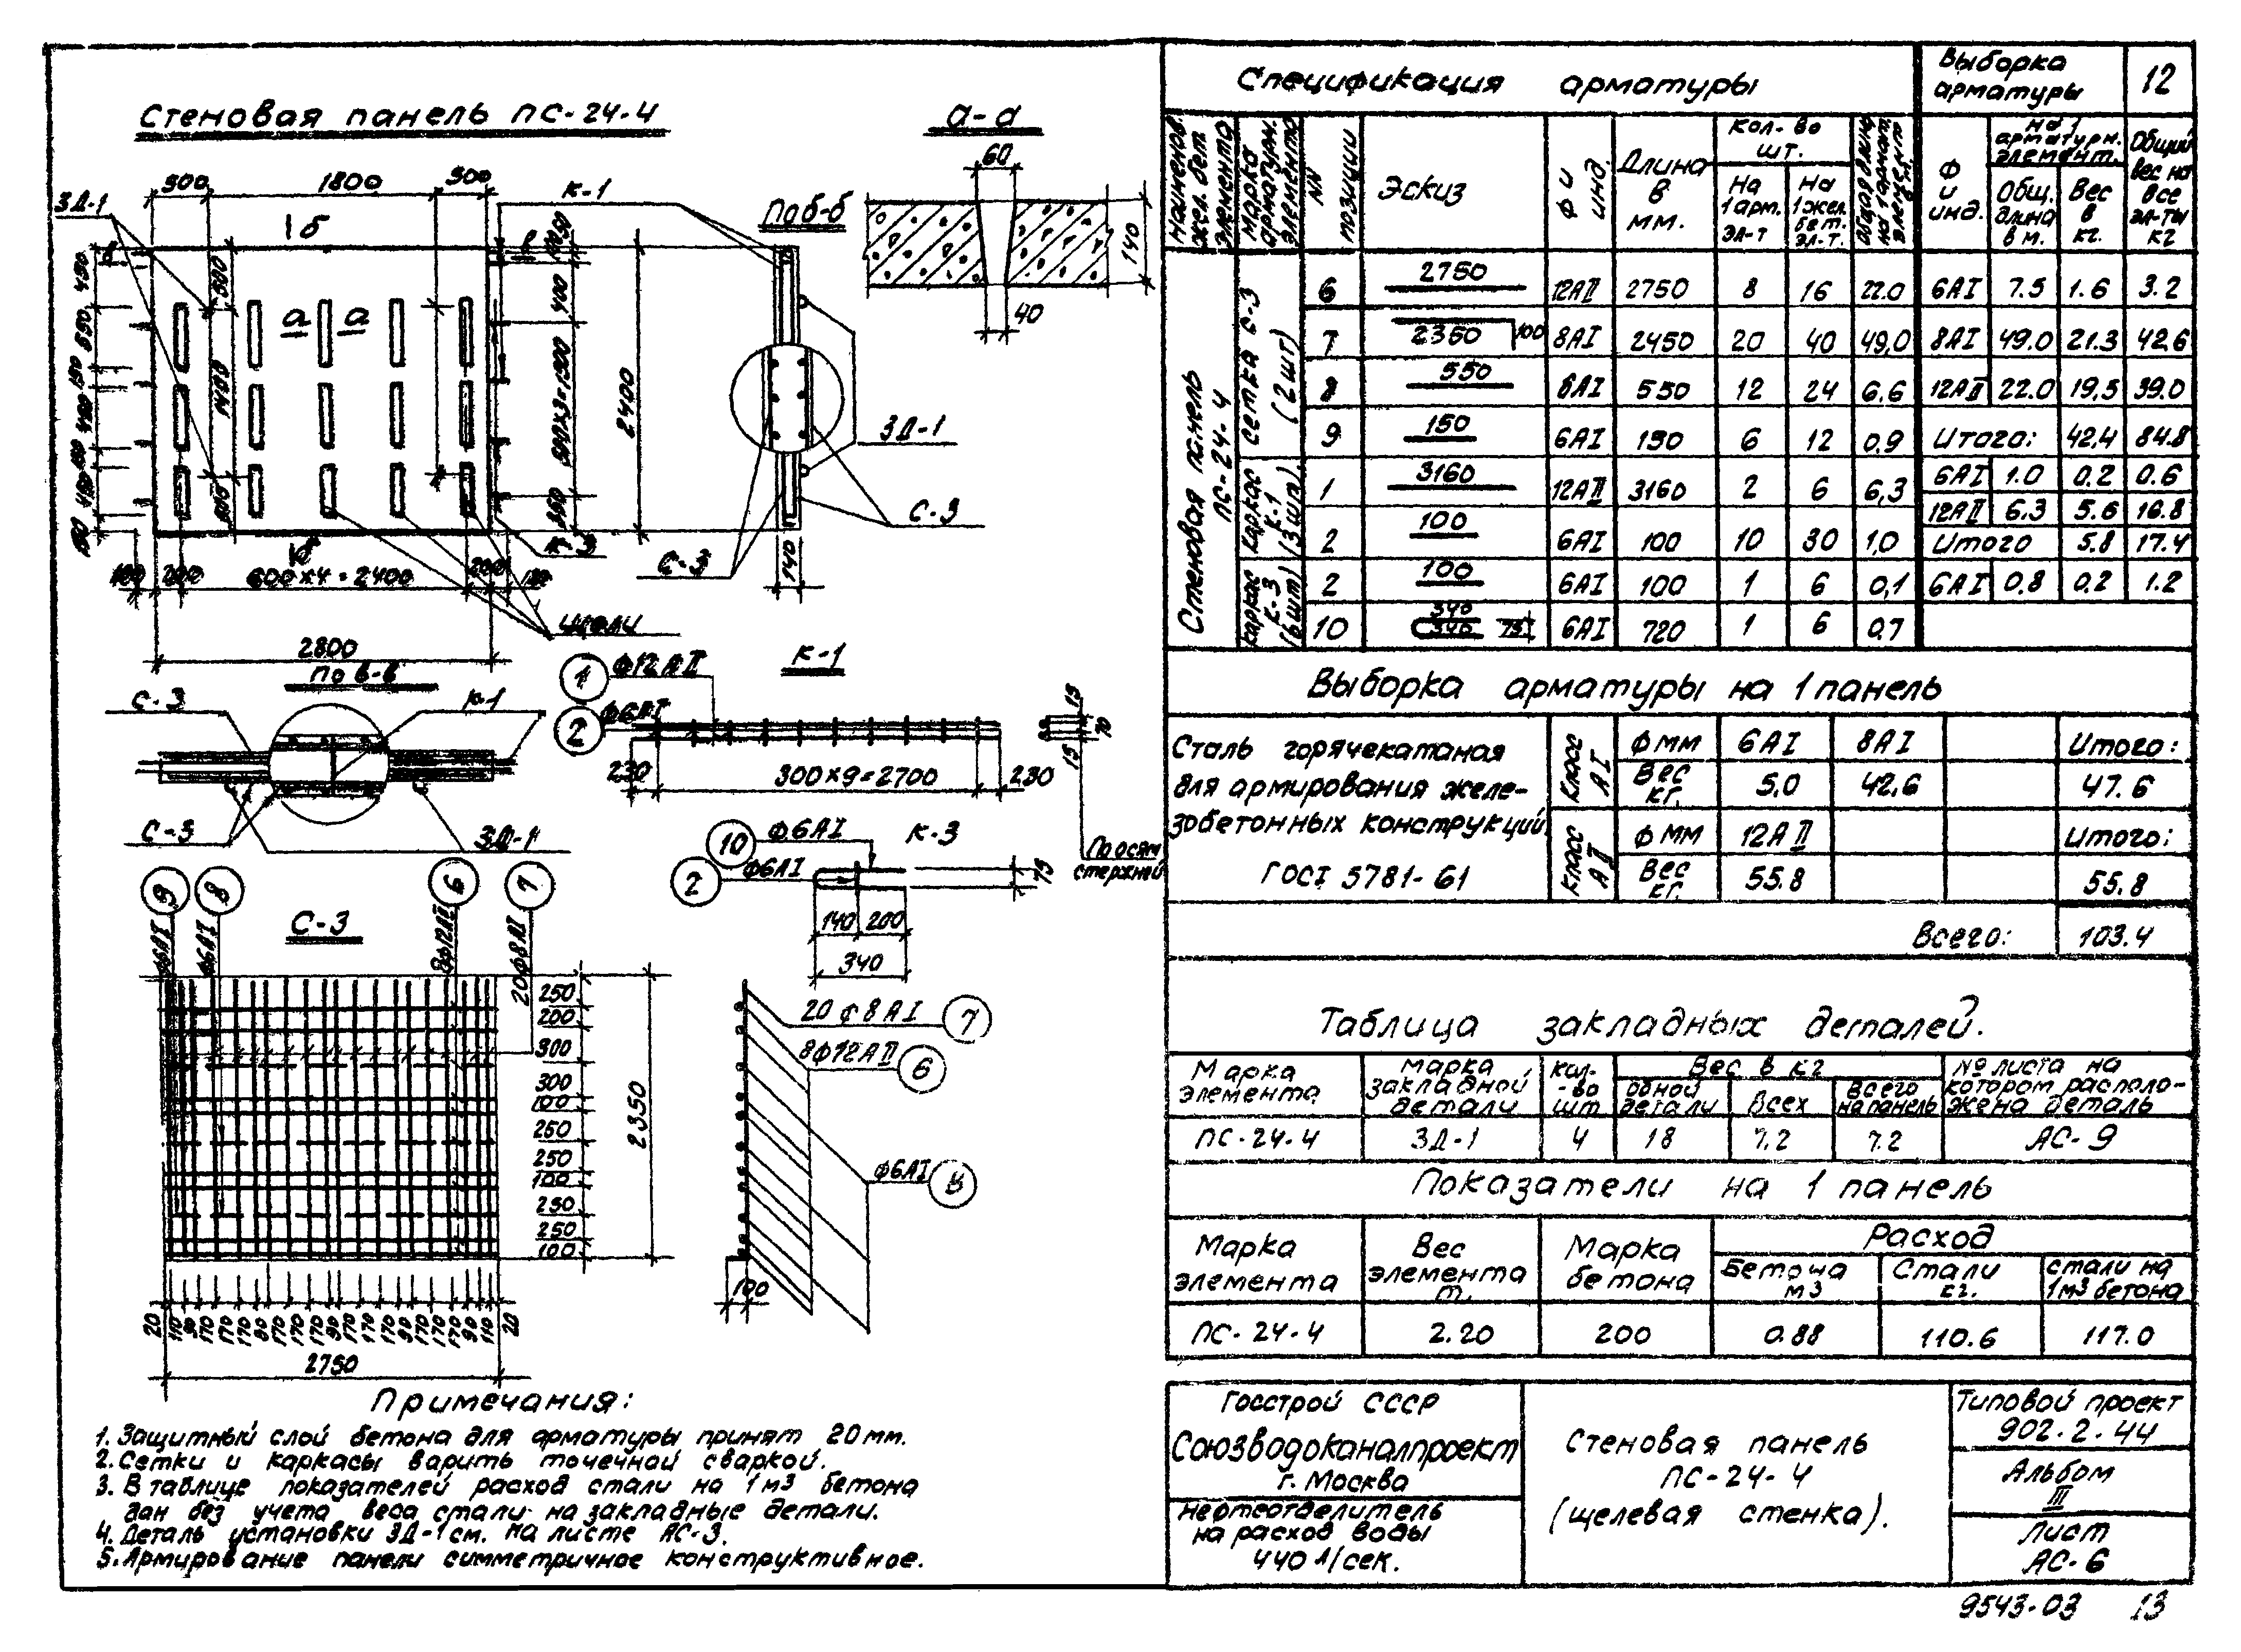 Стеновая панель ПС-24-4
а-а
60
140
40
500
1800
500
ЗД-1
К-1
По б-б
б
а
а
2400
ЗД-1
С-3
С-3
140
600×4=2400
2800
щели
По в-в
С-3
К-1
С-3
ЗД-1
К-1
1
Ф12АII
2
Ф6АI
230
300×9=2700
230
15
70
15
По осям
стержней
К-3
10
Ф6АI
2
Ф6АI
75
140
200
340
С-3
9
8
6
7
Ф6АI
Ф6АI
8Ф12АII
20Ф8АI
250
200
300
300
100
250
250
100
250
250
100
2350
20
110
90
170
170
170
80
170
170
170
90
170
170
170
90
170
170
170
90
110
20
2750
20Ф8АI
7
8Ф12АII
6
Ф6АI
8
100
Примечания:
1. Защитный слой бетона для арматуры принят 20мм.
2. Сетки и каркасы варить точечной сваркой.
3. В таблице показателей расход стали на 1м3 бетона
дан без учета веса стали на закладные детали.
4. Деталь установки ЗД-1 см. на листе АС-3.
5. Армирование панели симметричное конструктивное.
Спецификация арматуры
Выборка арматуры
12
Наименов. жел. бет элемента
Марка арматурн. элемента
NN позиции
Эскиз
Ф и инд.
Длина в мм.
Кол-во шт.
На 1 арм. эл-т
На 1 жел. бет. эл-т.
Общая длина на 1 армат. элемент в м.
Ф и инд.
На 1 арматурн. элемент.
Общ. длина в м.
Вес в кг.
Общий вес на все эл-ты кг
Стеновая панель ПС-24-4
Сетка С-3 (2шт)
6 2750 12АII 2750 8 16 22.0 6АI 7.5 1.6 3.2
7 2350 100 8АI 2450 20 40 49,0 8АI 49.0 21.3 42.6
8 550 6АI 550 12 24 6.6 12АII 22.0 19,5 39.0
9 150 6АI 150 6 12 0,9 Итого: 42,4 84.8
Каркас К-1 (3шт)
1 3160 12АII 3160 2 6 6,3 6АI 1.0 0.2 0.6
12АII 6.3 5.6 16.8
2 100 6АI 100 10 30 1,0 Итого 5.8 17.4
Каркас К-3 (6шт)
2 100 6АI 100 1 6 0,1 6АI 0.8 0.2 1.2
10 340 340 75 6АI 720 1 6 0.7
Выборка арматуры на 1 панель
Сталь горячекатаная
для армирования желе-
зобетонных конструкций
ГОСТ 5781-61
Класс АI
Ф мм 6АI 8АI Итого:
Вес кг. 5,0 42,6 47.6
Класс АII
Ф мм 12АII Итого:
Вес кг. 55.8 55.8
Всего: 103.4
Таблица закладных деталей.
Марка элемента
Марка закладной детали
Кол-во шт
Вес в кг
одной детали
Всех
Всего на панель
№ листа на котором располо-жена деталь
ПС-24-4 ЗД-1 4 18 7.2 7.2 АС-9
Показатели на 1 панель
Марка элемента
Вес элемента т.
Марка бетона
Расход
Бетона м3
Стали кг.
Стали на 1м3 бетона
ПС-24-4 2.20 200 0.88 110.6 117.0
Госстрой СССР
Союзводоканалпроект
г. Москва
Нефтеотделитель
на расход воды
440 л/сек.
Стеновая панель
ПС-24-4
(щелевая стенка).
Типовой проект
902-2-44
Альбом
III
Лист
АС-6
9543-03 13